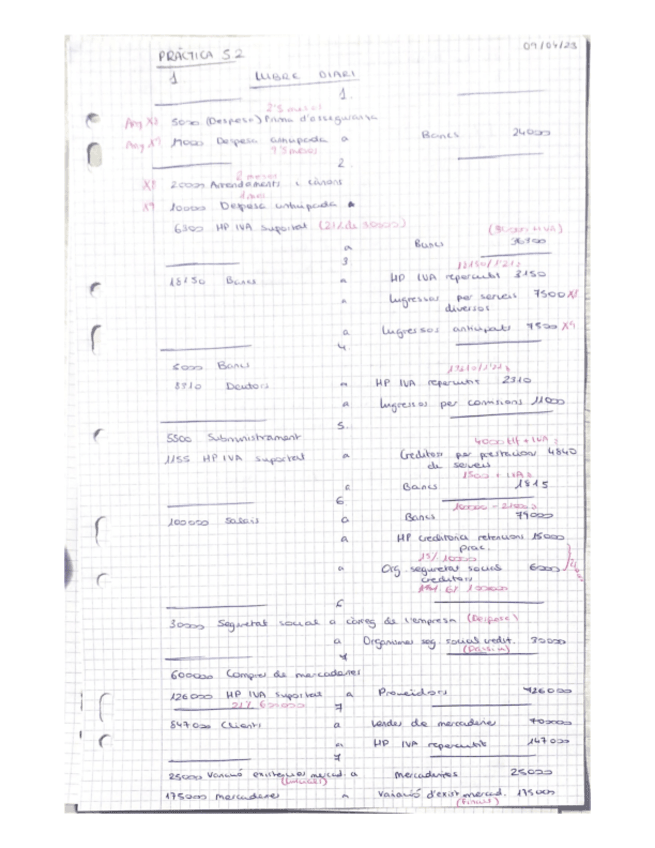 PRÀCTICA 5.2 07/04/23
1 LLIBRE DIARI
1.
Any X8 5000 (Despesa) Prima d'assegurança
Any X9 Despesa anticipada a Bancs 24000
2
X8 20000 Arrendaments i cànons
X9 10000 Despesa anticipada a
6300 HP IVA suportat (21% de 30000)
a Bancs 36300
3
18150 Bancs a HP IVA repercutit 3150
a Ingressos per serveis diversos 7500 X8
a Ingressos anticipats 7500 X9
4
Bancs
Deutors a HP IVA repercutit 2310
a Ingressos per comissions 11000
5.
5500 Subministrament
1155 HP IVA suportat a Creditors per prestacions de serveis 4840
a Bancs 1815
6
100000 Salaris a Bancs 79000
a HP creditora retencions prac. 15000
a Org. seguretat social creditors 6000
6
30000 Seguretat social a càrrec de l'empresa (Despesa)
a Organismes seg. social credit. 30000
(Passiu)
7
600000 Compres de mercaderies
126000 HP IVA suportat a Proveïdors 726000
21% 600000
7
847000 Clients a Vendes de mercaderies
a HP IVA repercutit 147000
7
25000 Variació existències mercad. a mercaderies 25000
(inicials)
175000 mercaderies a Variació d'exist. mercad. 175000
(Finals)